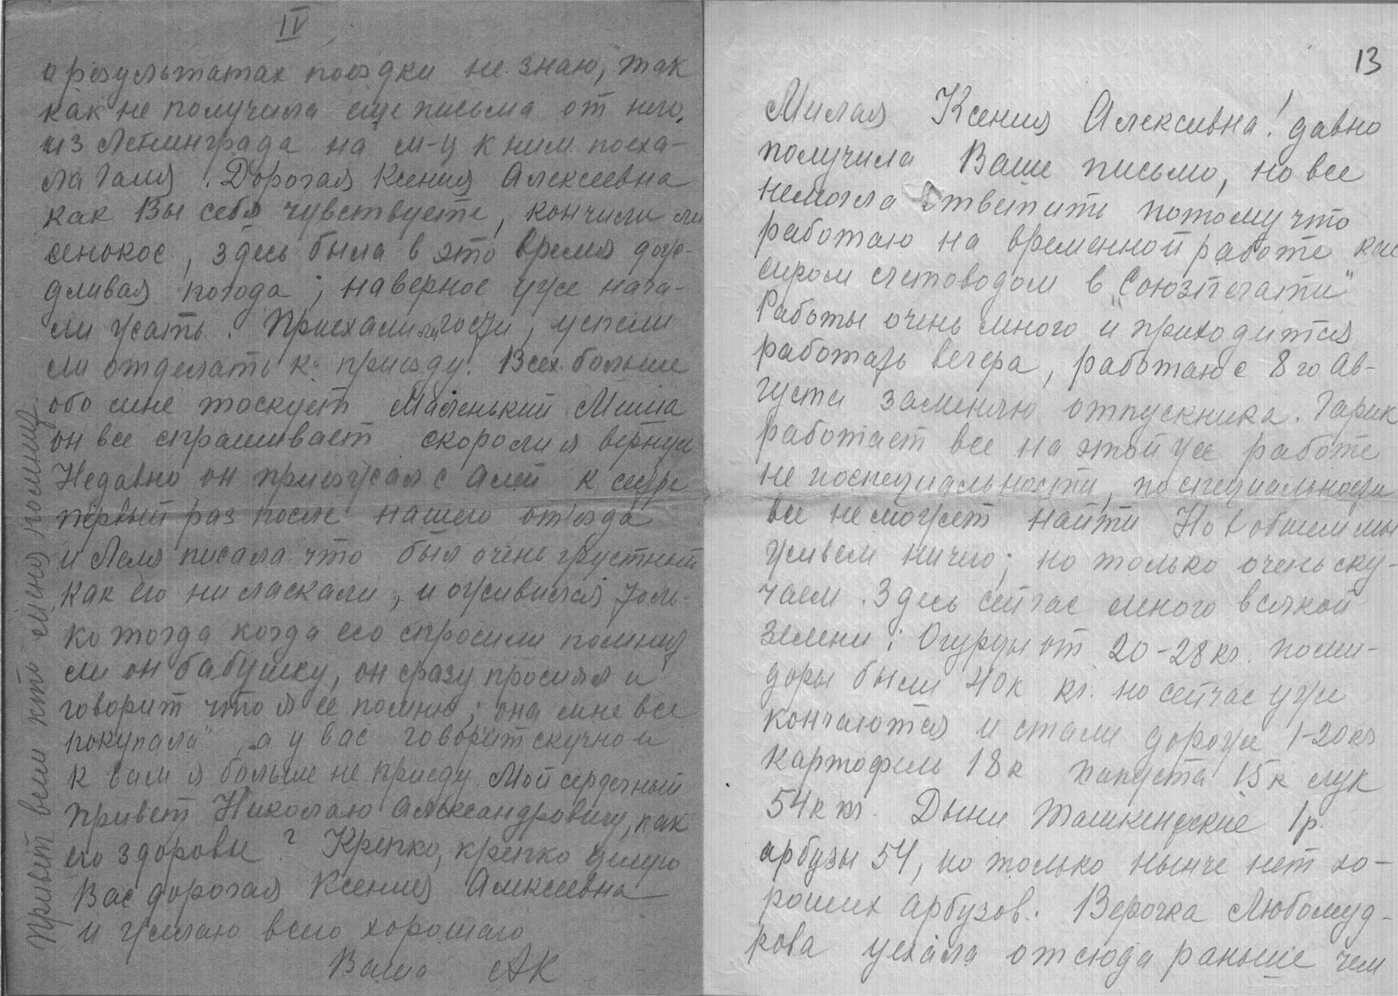 IV
о результатах поездки не знаю, так
как не получила еще письма от него,
из Ленинграда на м-ц к ним поеха-
ла Галя. Дорогая Ксения Алексеевна
как Вы себя чувствуете, кончили ли
сенокос, здесь была в это время дож-
дливая погода; наверное уже нача-
ли жать. Приехали ли гости, успели
ли отделать к приезду. Всех больше
обо мне тоскует Маленький Миша
он все спрашивает скоро ли я вернусь
Недавно он приезжал с Алей к
первый раз после нашего отъезда
и Леля писала что был очень грустный
как его ни ласкали, и оживился толь-
ко тогда когда его спросили помнит
ли он бабушку, он сразу просиял и
говорит что я ее помню; она мне все
покупала" а у вас говорит скучно и
к вам я больше не приеду Мой сердечный
привет Николаю Александровичу, как
его здоровье? Крепко, крепко целую
Вас дорогая Ксения Алексеевна
и желаю всего хорошаго
Ваша АК
Привет всем кто меня помнит.
13
Милая Ксения Алексевна! давно
получила Ваше письмо, но все
немогла ответить потому что
работаю на временной работе кас
сиром счетоводом в "Союзпечати"
Работы очень много и приходится
работать вечера, работаю с 8 го Ав-
густа заменяю отпускника. Гарик
работает все на этой же работе
не поспециальности, по специальности
все неможет найти Но в общем мы
живем ничего; но только очень ску-
чаем. Здесь сейчас много всякой
зелени: Огурцы от 20-28 кг. поми-
доры были 40к кг. но сейчас уже
кончаются и стали дороже 1-20 кг
картофель 18к капуста 15к лук
54к кг. Дыни Ташкентские 1р.
арбузы 54, но только нынче нет хо-
роших арбузов. Верочка Любомуд-
рова уехала отсюда раньше чем